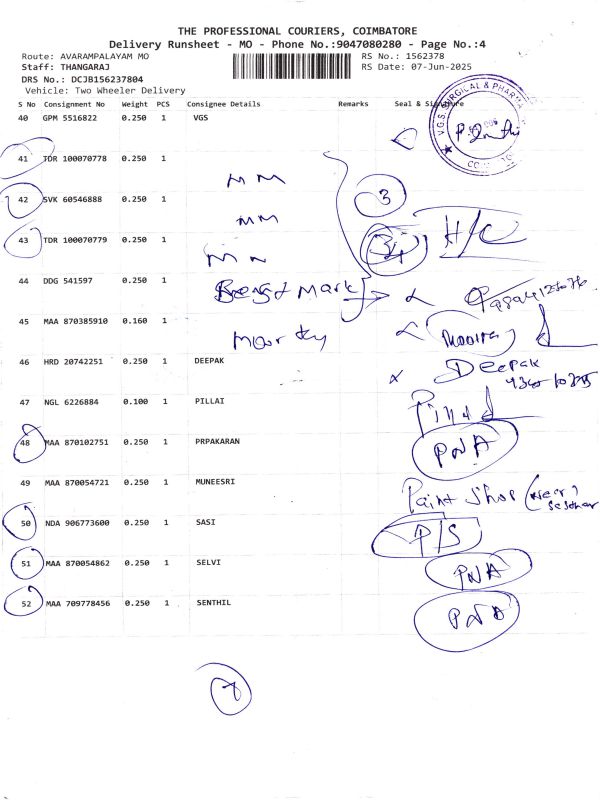 THE PROFESSIONAL COURIERS, COIMBATORE
Delivery Runsheet - MO - Phone No.:9047080280 - Page No.:4
Route: AVARAMPALAYAM MO RS No.: 1562378
Staff: THANGARAJ RS Date: 07-Jun-2025
DRS No.: DCJB156237804
Vehicle: Two Wheeler Delivery
S No Consignment No Weight PCS Consignee Details Remarks Seal & Signature
V.G.S. SURGICAL & PHARMA
40 GPM 5516822 0.250 1 VGS
41 TDR 100070778 0.250 1
MM
42 SVK 60546888 0.250 1 3
MM
43 TDR 100070779 0.250 1 H/C
44 DDG 541597 0.250 1 Mark
45 MAA 870385910 0.160 1
46 HRD 20742251 0.250 1 DEEPAK Deepak
47 NGL 6226884 0.100 1 PILLAI
48 MAA 870102751 0.250 1 PRPAKARAN PNA
49 MAA 870054721 0.250 1 MUNEESRI Paint Shop
50 NDA 906773600 0.250 1 SASI P/S
51 MAA 870054862 0.250 1 SELVI PNA
52 MAA 709778456 0.250 1 SENTHIL PNA
7